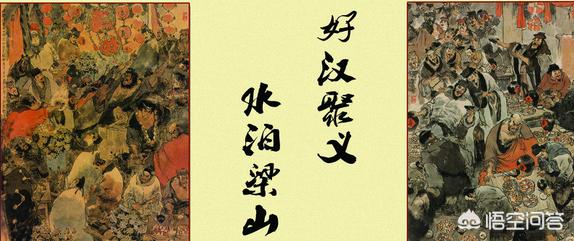 好汉聚义
水泊梁山
悟空问答